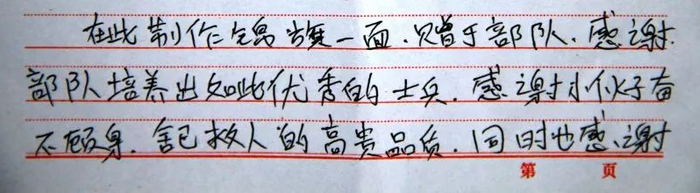 在此制作锦旗一面.只赠于部队.感谢
部队培养出如此优秀的士兵.感谢小伙子奋
不顾身.舍己救人的高贵品质.同时也感谢
第 页